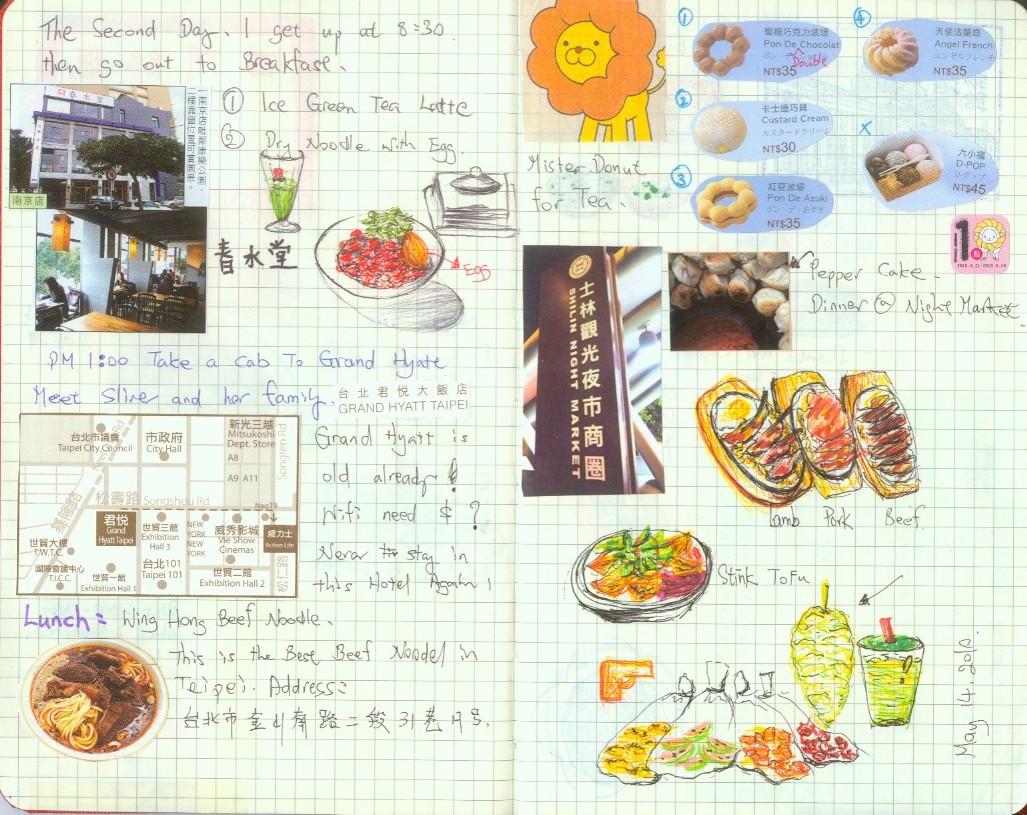 The Second Day. I get up at 8:30.
then go out to Breakfast.
春水堂
南京店毗鄰康樂公園，
二樓靠窗位置可賞園景。
南京店
① Ice Green Tea Latte
② Dry Noodle with Egg.
春水堂
Egg
PM 1:00 Take a cab To Grand Hyate
Meet Sliver and her family.
台北君悅大飯店
GRAND HYATT TAIPEI
台北市議會
Taipei City Council
市政府
City Hall
新光三越
Mitsukoshi
Dept. Store
A8
A9 A11
Songren Rd
松壽路 Songshou Rd
基隆路
Keelung Rd
Neo19
君悅
Grand
Hyatt Taipei
世貿三館
Exhibition
Hall 3
NEW
YORK
NEW
YORK
威秀影城
Vie Show
Cinemas
威力士
Action Life
世貿大樓
T.W.T.C.
國際會議中心
T.I.C.C.
世貿一館
Exhibition Hall 1
台北101
Taipei 101
世貿二館
Exhibition Hall 2
松仁路
Grand Hyatt is
old already!
Wifi need $ ?
Never stay in
this Hotel Again!
Lunch: Wing Hong Beef Noodle.
This is the Best Beef Noodel in
Taipei. Address:
台北市金山南路二段31巷17号.
Mister Donut
for Tea.
①
蜜糖巧克力波堤
Pon De Chocolat
Double
NT$35
②
卡士達巧貝
Custard Cream
カスタードクリーム
NT$30
③
紅豆波堤
Pon De Azuki
ポン・デ・あずき
NT$35
④
天使法蘭奇
Angel French
エンゼルフレンチ
NT$35
X
六小福
D-POP
D-ポップ
NT$45
1
點
士林觀光夜市商圈
SHILIN NIGHT MARKET
Pepper Cake.
Dinner @ Night Market.
Lamb Pork Beef.
Stink ToFu
May 14 2010.